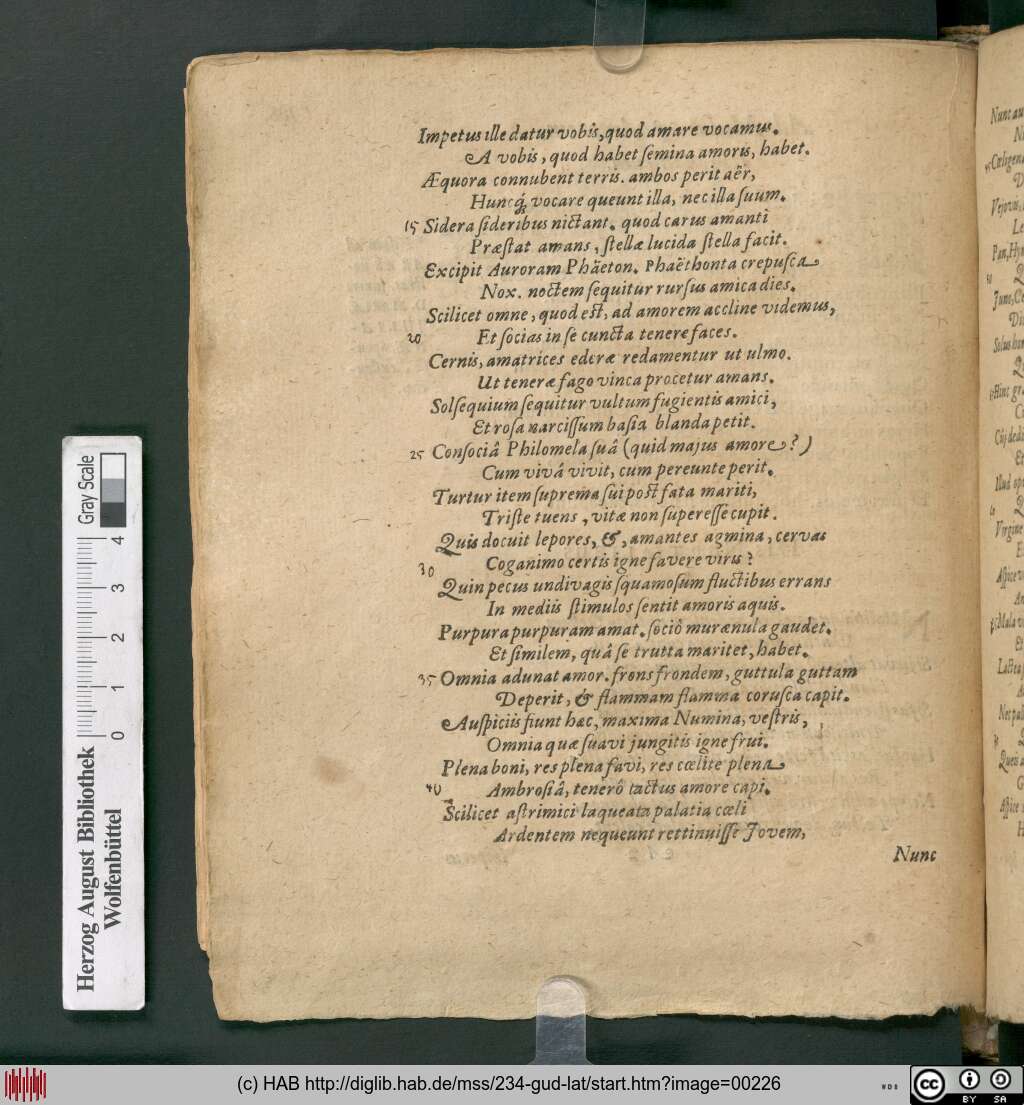 Impetus ille datur vobis, quod amare vocamus.
A vobis, quod habet semina amoris, habet.
Æquora connubent terris. ambos perit aër,
Huncq́; vocare queunt illa, nec illa suum.
15 Sidera sideribus nictant. quod carus amanti
Præstat amans, stellæ lucida stella facit.
Excipit Auroram Phäeton. Phaëthonta crepusca
Nox. noctem sequitur rursus amica dies.
Scilicet omne, quod est, ad amorem accline videmus,
20 Et socias in se cuncta tenere faces.
Cernis, amatrices ederæ redamentur ut ulmo.
Ut teneræ fago vinca procetur amans.
Solsequium sequitur vultum fugientis amici,
Et rosa narcissum basia blanda petit.
25 Consociâ Philomela suâ (quid majus amore?)
Cum vivâ vivit, cum pereunte perit.
Turtur item suprema sui post fata mariti,
Triste tuens, vitæ non superesse cupit.
Quis docuit lepores, &, amantes agmina, cervas
30 Coganimo certis igne favere viris?
Quin pecus undivagis squamosum fluctibus errans
In mediis stimulos sentit amoris aquis.
Purpura purpuram amat. sociô murænula gaudet.
Et similem, quâ se trutta maritet, habet.
35 Omnia adunat amor. frons frondem, guttula guttam
Deperit, & flammam flamma corusca capit.
Auspiciis fiunt hæc, maxima Numina, vestris,
Omnia quæ suavi jungitis igne frui.
Plena boni, res plena favi, res cœlite plena
40 Ambrosiâ, tenerô tactus amore capi.
Scilicet astrimici laqueata palatia cœli
Ardentem nequeunt rettinuisse Jovem,
Nunc
Herzog August Bibliothek
Wolfenbüttel
0 1 2 3 4
Gray Scale
(c) HAB http://diglib.hab.de/mss/234-gud-lat/start.htm?image=00226
WDB
cc BY SA